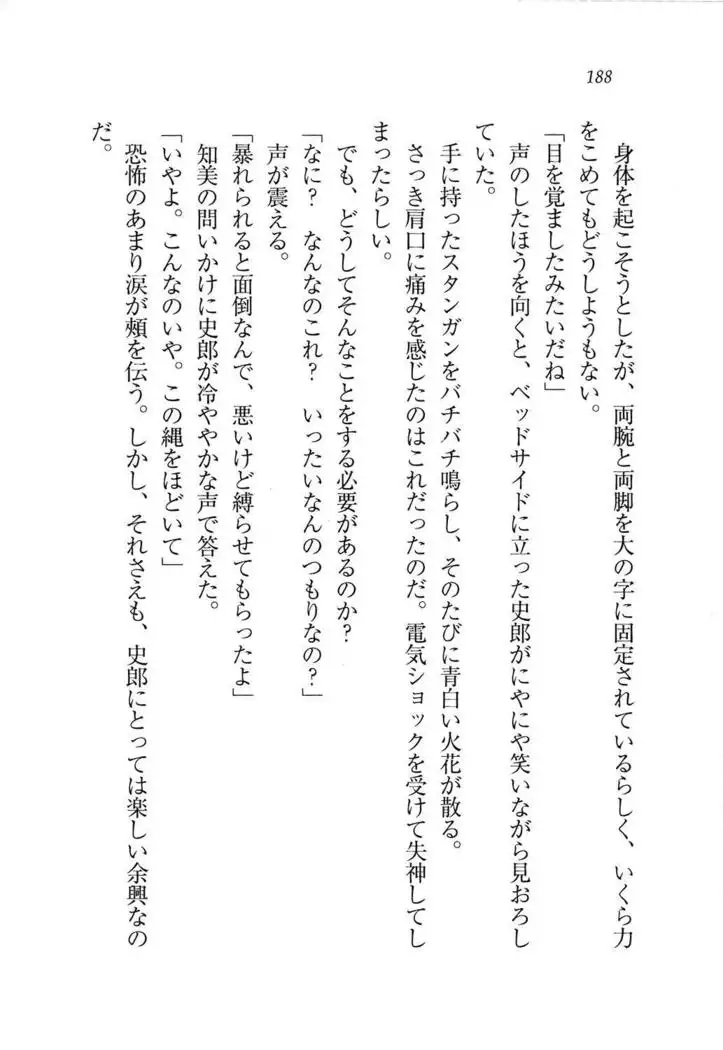 188
身体を起こそうとしたが、両腕と両脚を大の字に固定されているらしく、いくら力
をこめてもどうしようもない。
「目を覚ましたみたいだね」
声のしたほうを向くと、ベッドサイドに立った史郎がにやにや笑いながら見おろし
ていた。
手に持ったスタンガンをバチバチ鳴らし、そのたびに青白い火花が散る。
さっき肩口に痛みを感じたのはこれだったのだ。電気ショックを受けて失神してし
まったらしい。
でも、どうしてそんなことをする必要があるのか?
「なに? なんなのこれ? いったいなんのつもりなの?」
声が震える。
「暴れられると面倒なんで、悪いけど縛らせてもらったよ」
知美の問いかけに史郎が冷ややかな声で答えた。
「いやよ。こんなのいや。この縄をほどいて」
恐怖のあまり涙が頰を伝う。しかし、それさえも、史郎にとっては楽しい余興なの
だ。